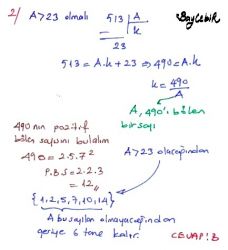 2/ A>23 olmalı 513 | A
k
23
Baycebir
513 = A.k + 23 ⇒ 490 = A.k
k = 490/A
A, 490'ı bölen
bir sayı
490 nın pozitif
bölen sayısını bulalım
490 = 2.5.7²
P.B.S = 2.2.3
= 12,,
A>23 olacağından
{1,2,5,7,10,14}
A bu sayıları olmayacağından
geriye 6 tane kalır.
CEVAP: B